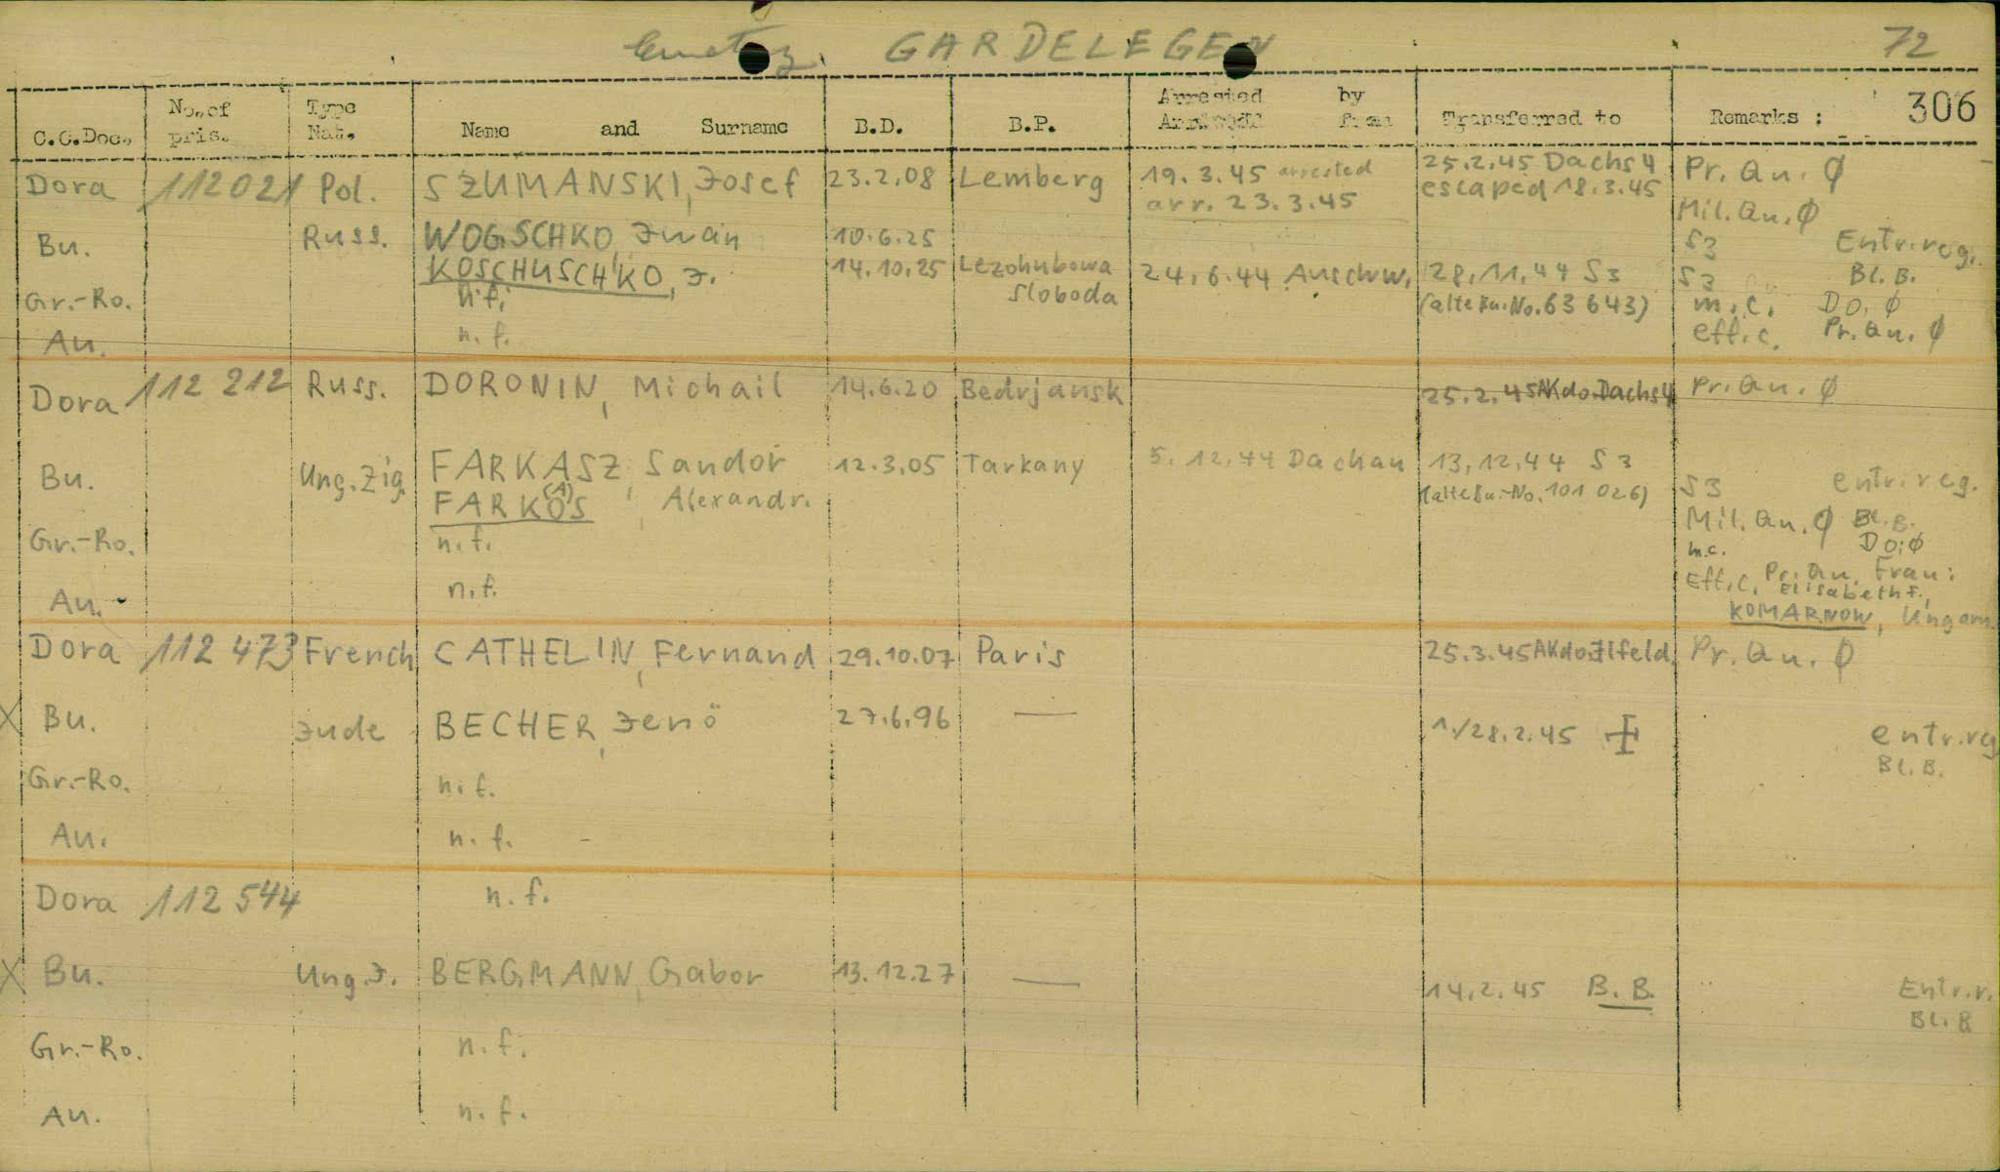 GARDELEGEN 72
C.C.Doc. No. of pris. Type Nat. Name and Surname B.D. B.P. Arrested by from Transferred to Remarks : 306
Dora 112021 Pol. SZUMANSKI, Josef 23.2.08 Lemberg 19.3.45 arrested 25.2.45 Dachs 4 Pr. Qu. Ø
arr. 23.3.45 escaped 18.3.45 Mil. Qu. Ø
Bu. Russ. WOGSCHKO, Iwan 10.6.25 S3 Entr. reg.
KOSCHUSCHKO, I. 14.10.25 Lezohubowa 24.6.44 Auschw. 28.11.44 S3 S3 Bl. B.
Gr.-Ro. n.f. Sloboda (alte Bu.-No. 63 643) m.c. Do. Ø
Au. n.f. eff.c. Pr. Qu. Ø
Dora 112 212 Russ. DORONIN, Michail 14.6.20 Bedrjansk 25.2.45 AKdo. Dachs 4 Pr. Qu. Ø
Bu. Ung. Zig. FARKASZ, Sandor 12.3.05 Tarkany 5.12.44 Dachau 13.12.44 S3 S3 entr. reg.
FARKOS (A), Alexandr. (alte Bu.-No. 101 026) Mil. Qu. Ø Bl. B.
Gr.-Ro. n.f. m.c. Do; Ø
Au. n.f. Eff.c. Pr. Qu. Frau: Elisabeth F.,
KOMARNOW, Ungarn.
Dora 112 473 French CATHELIN, Fernand 29.10.07 Paris 25.3.45 AKdo. Ilfeld Pr. Qu. Ø
X Bu. Jude BECHER, Jenö 27.6.96 — 1./28.2.45 ‡ entr. reg
Bl. B.
Gr.-Ro. n.f.
Au. n.f. -
Dora 112 544 n.f.
X Bu. Ung. J. BERGMANN, Gabor 13.12.27 — 14.2.45 B. B. Entr. r.
Bl. B
Gr.-Ro. n.f.
Au. n.f.